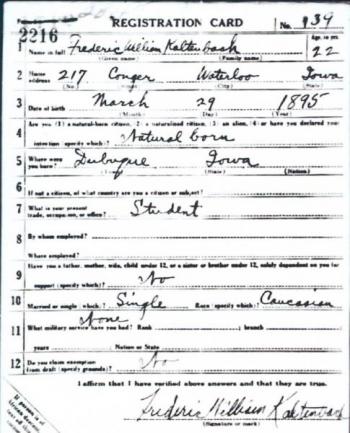 REGISTRATION CARD No. 139
2216
1 Name in full Frederic William Kaltenbach Age, in yrs. 22
(Given name) (Family name)
2 Home address 217 Conger Waterloo Iowa
(No.) (City) (State)
3 Date of birth March 29 1895
(Month) (Day) (Year)
4 Are you (1) a natural-born citizen, (2) a naturalized citizen, (3) an alien, (4) or have you declared your
intention (specify which)? Natural born
5 Where were you born? Dubuque Iowa
(Town) (State) (Nation)
6 If not a citizen, of what country are you a citizen or subject?
7 What is your present trade, occupation, or office? Student
8 By whom employed?
Where employed?
9 Have you a father, mother, wife, child under 12, or a sister or brother under 12, solely dependent on you for
support (specify which)? No
10 Married or single (which)? Single Race (specify which)? Caucasian
11 What military service have you had? Rank None branch
years Nation or State
12 Do you claim exemption from draft (specify grounds)? No
I affirm that I have verified above answers and that they are true.
Frederic William Kaltenbach
(Signature or mark)
If person is of African descent,